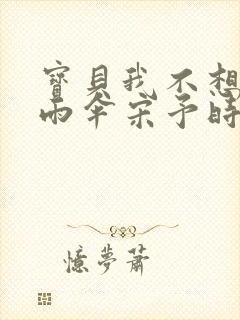 寶貝我不想
雨傘宋予時
憶夢蕭